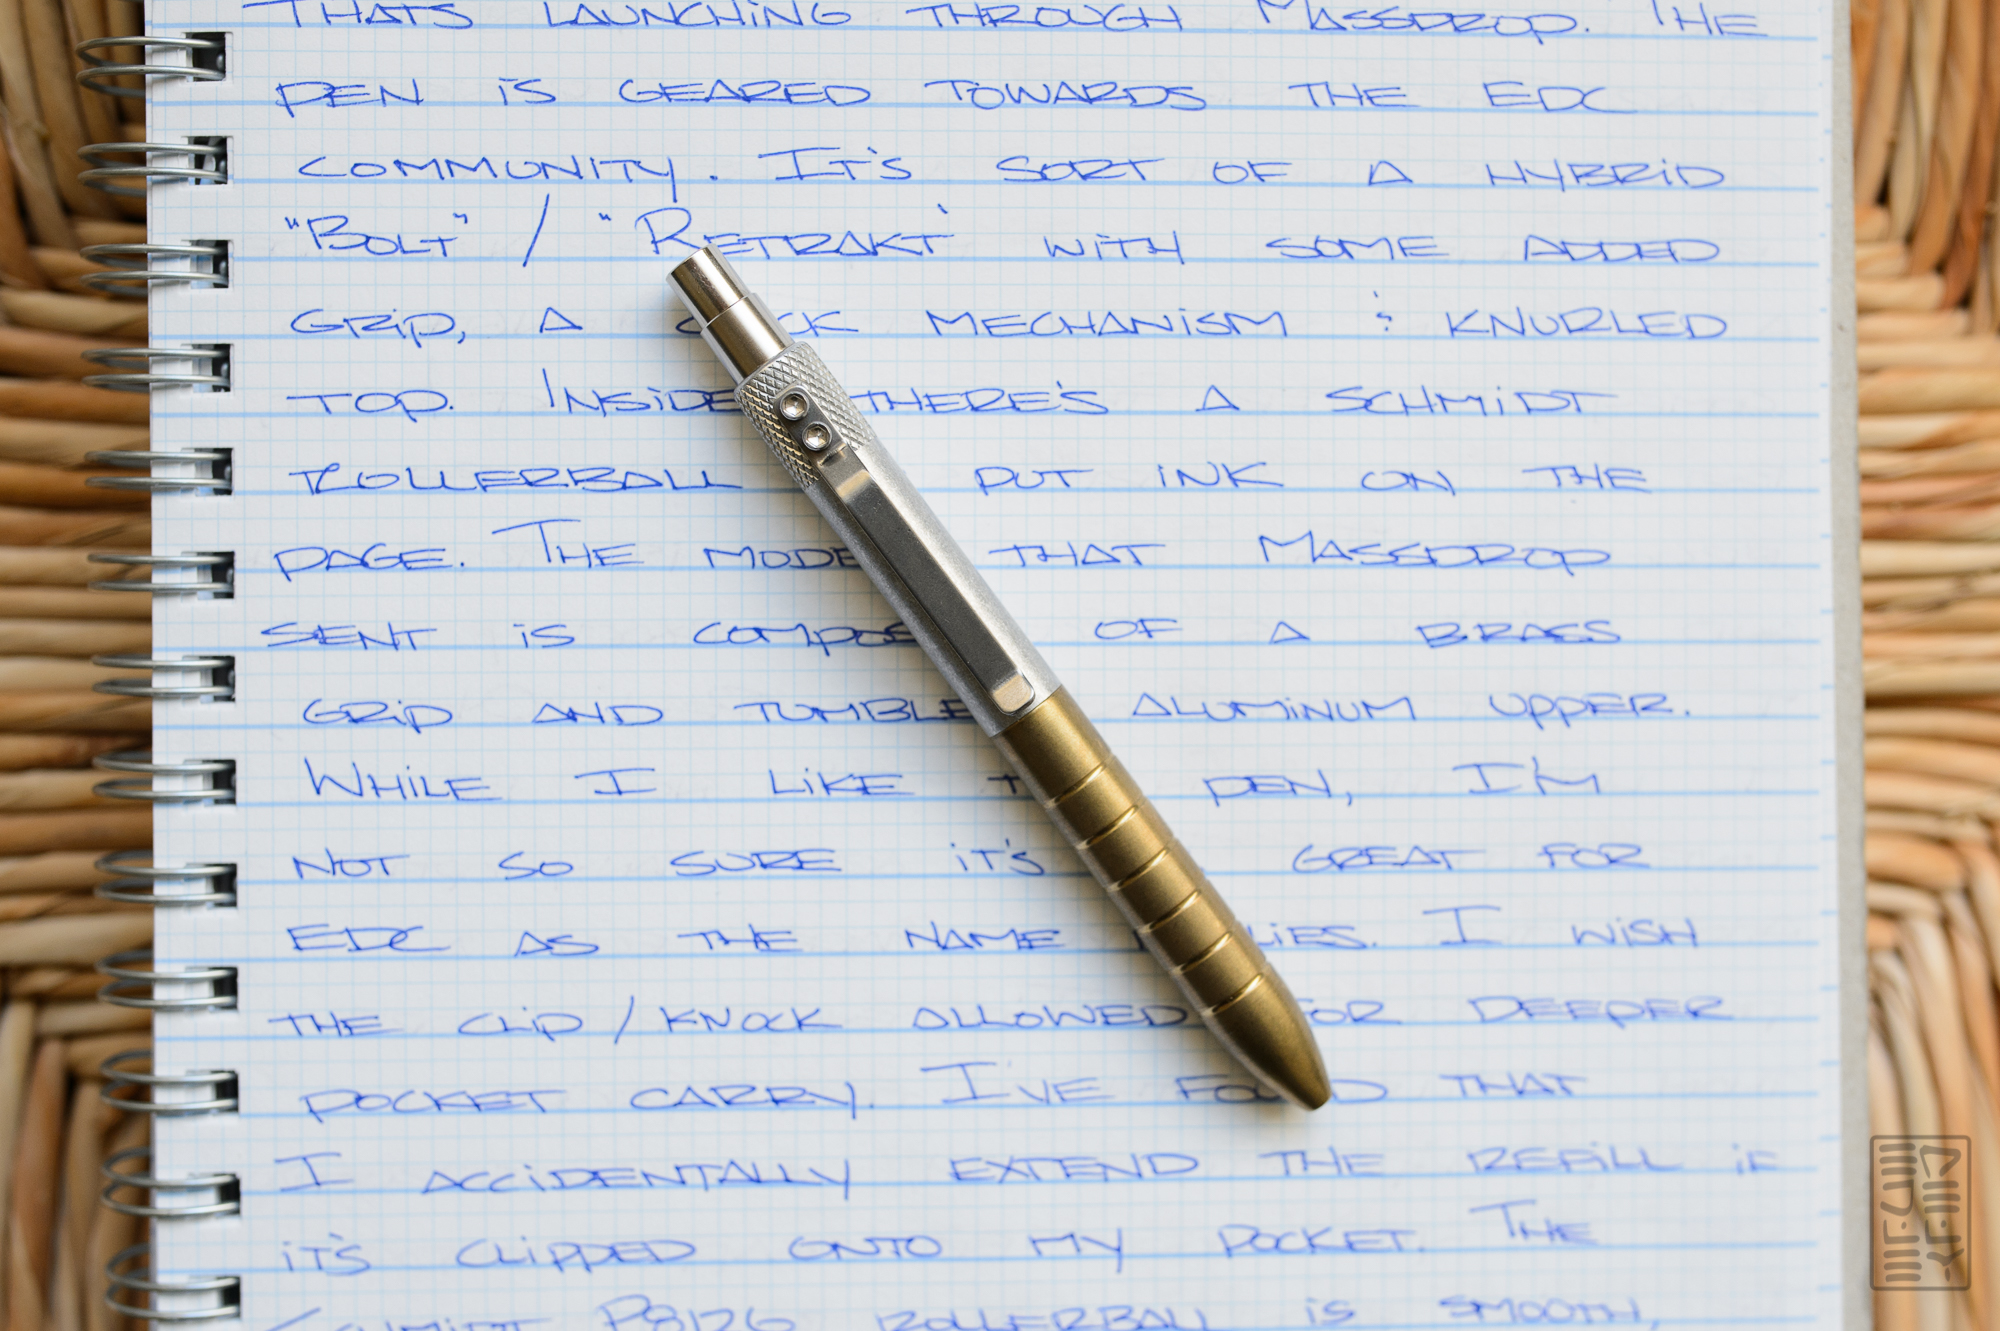 THATS LAUNCHING THROUGH MASSDROP. THE
PEN IS GEARED TOWARDS THE EDC
COMMUNITY. IT'S SORT OF A HYBRID
"BOLT" / "RETRAKT' WITH SOME ADDED
GRIP, A MECHANISM & KNURLED
TOP. INSIDE THERE'S A SCHMIDT
ROLLERBALL PUT INK ON THE
PAGE. THE THAT MASSDROP
SENT IS OF A BRASS
GRIP AND ALUMINUM UPPER.
WHILE I LIKE PEN, I'M
NOT SO SURE IT'S GREAT FOR
EDC AS THE NAME I WISH
THE CLIP / KNOCK ALLOWED FOR DEEPER
POCKET CARRY. I'VE THAT
I ACCIDENTALLY EXTEND THE REFILL IF
IT'S CLIPPED ONTO MY POCKET. THE
SCHMIDT P8126 ROLLERBALL IS SMOOTH,